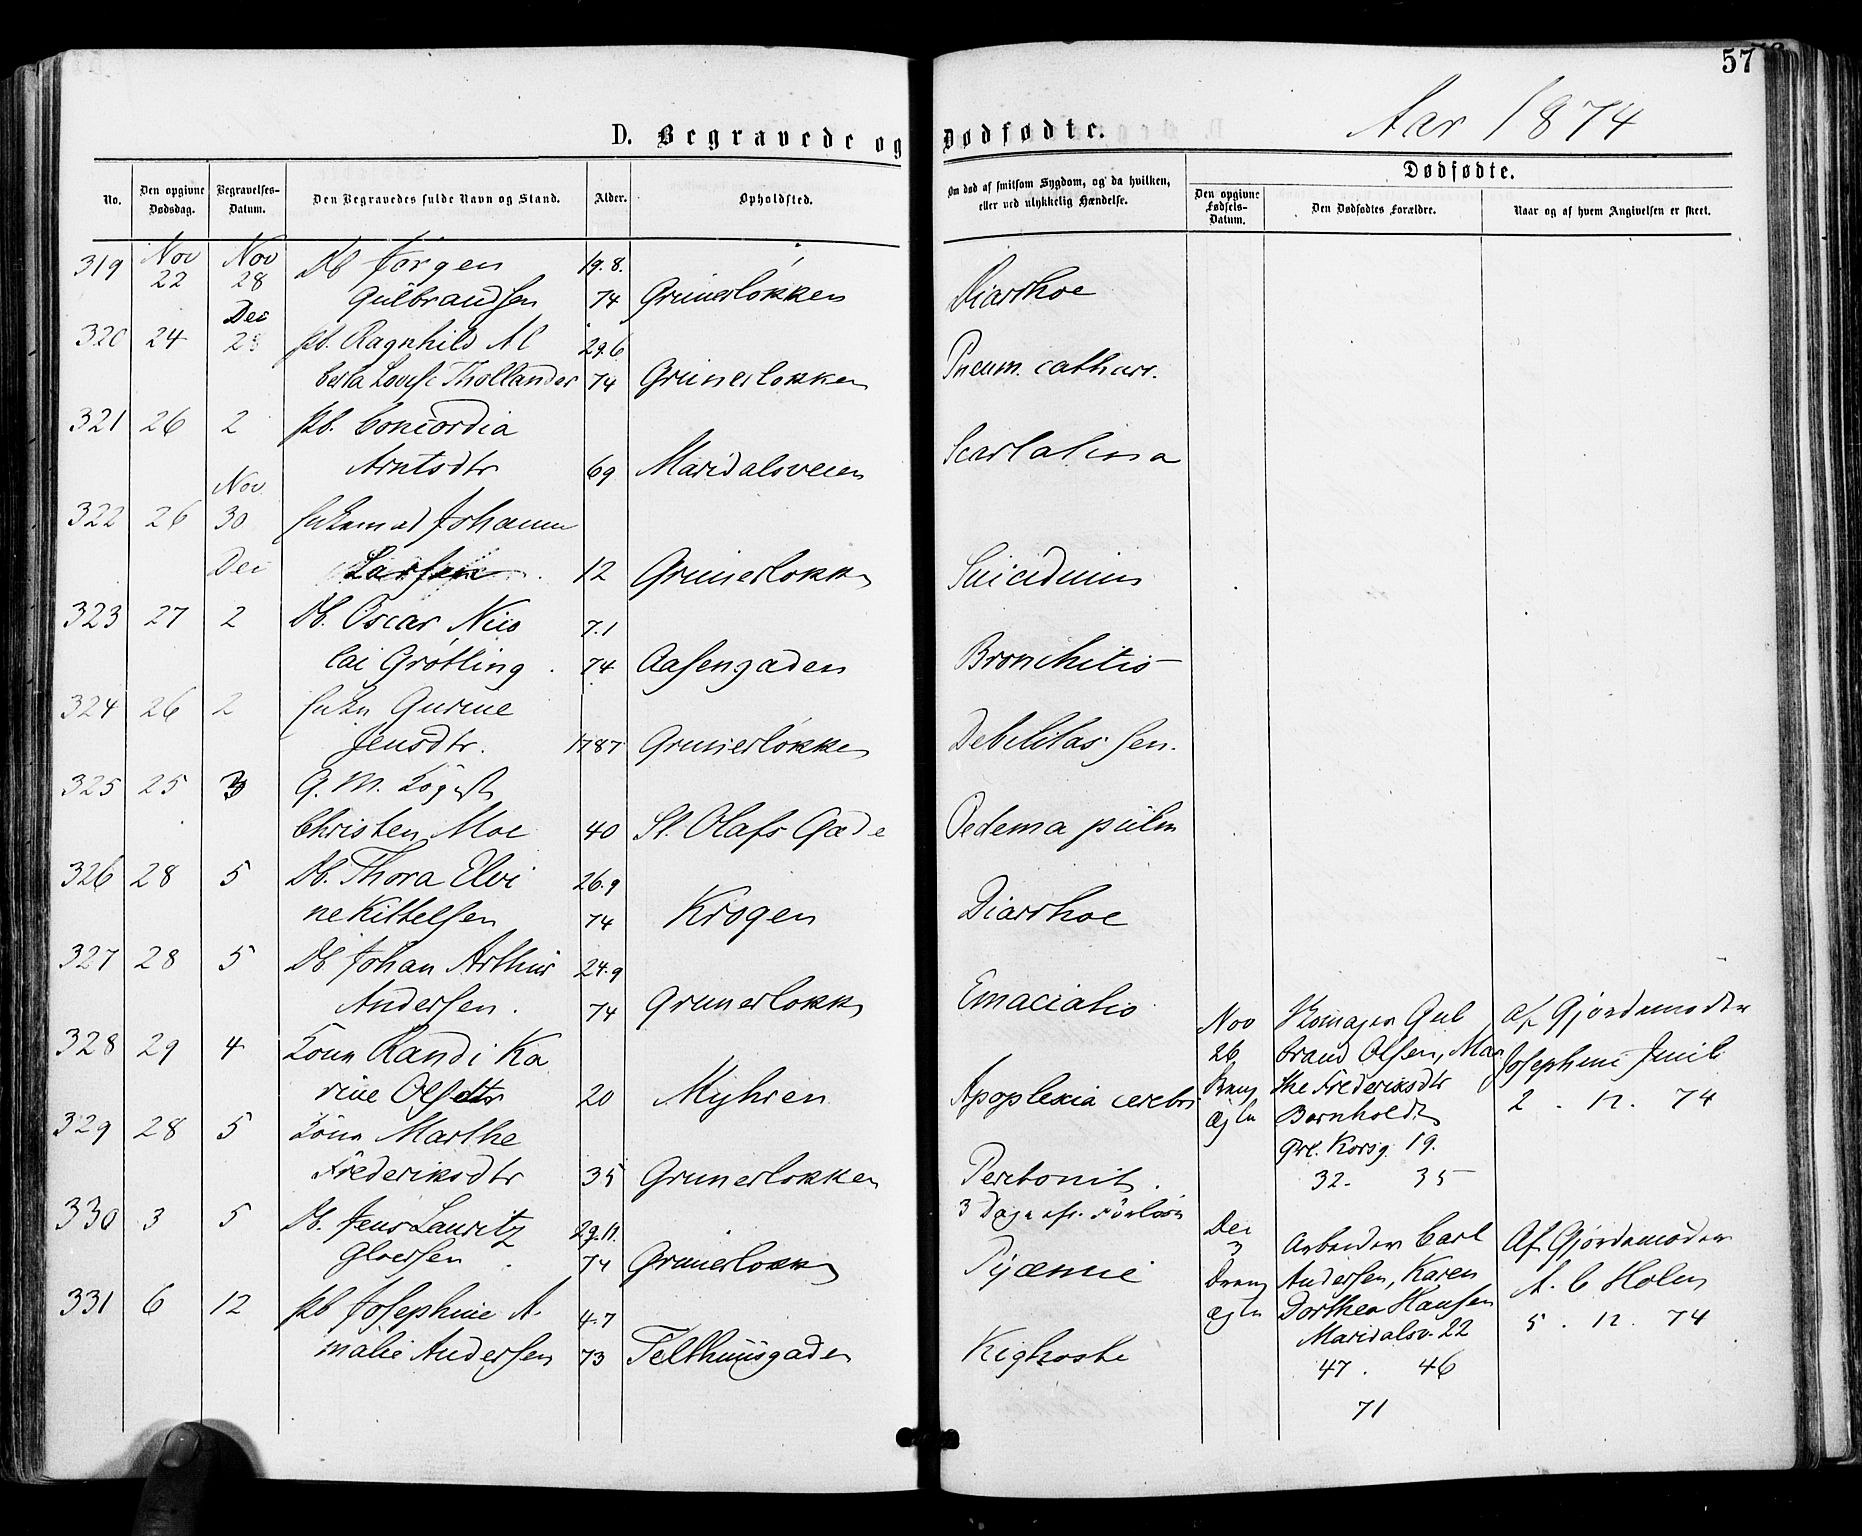 57
D. Begravede og Dødfødte.
Aar 1874
No.
Den opgivne Dødsdag.
Begravelses-Datum.
Den Begravedes fulde Navn og Stand.
Alder.
Opholdsted.
Om død af smitsom Sygdom, og da hvilken, eller ved ulykkelig Hændelse.
Dødfødte.
Den opgivne Fødsels-Datum.
Den Dødfødtes Forældre.
Naar og af hvem Angivelsen er skeet.
319 Nov 22 Nov 28 Db Jørgen 19.8.
Gulbrandsen 74 Grunerløkken Diarrhoe
Dec
320 24 2 Pb. Ragnhild Al 29.6
berta Lovise Thollander 74 Grunerløkken Pneum. catharr.
321 26 2 Pb. Concordia
Arntsdtr 69 Maridalsveien Scarlatina
Nov
322 26 30 Johann
Dec Larsen 12 Grunerløkk Suicidium
323 27 2 Db. Oscar Nico 7.1
lai Grøtling 74 Aasengaden Bronchitis
324 26 2 Gurine
Jensdtr. 1787 Grunerløkken Debilitas sen.
325 25 3 G. M.
Christen Moe 40 St. Olafs Gade Oedema pulm
326 28 5 Db. Thora Elvi 26.9
ne Kittelsen 74 Krogen Diarrhoe
327 28 5 Db Johan Arthur 24.9
Andersen. 74 Grunerløkk Emaciatio
328 29 4 Kona Randi Ka
rine Olsdtr 20 Myhren Apoplexia cerebri
329 28 5 Kona Marthe
Frederiksdtr 35 Grunerløkken Peritonit.
3 Dage ef. Forløsn
330 3 5 Db. Jens Lauritz 29.11.
Gloersen 74 Grunerløkk Pyæmie
331 6 12 Pb Josephine A. 4.7
malie Andersen 73 Telthuusgaden Kighoste
Nov 26 Dreng ægte
Skomager Gul
brand Olsen, Mar
the Frederiksdtr
Bornholdt
Grl. Korsg. 19.
32. 35
af Gjordemoder
Josephine Juul
2. 12. 74
Dec 3 Dreng ægte
Arbeider Carl
Andersen, Karen
Dorthea Hansen
Maridalsv. 22
47. 46
71
Af Gjordemoder
A. C Holm
5. 12. 74